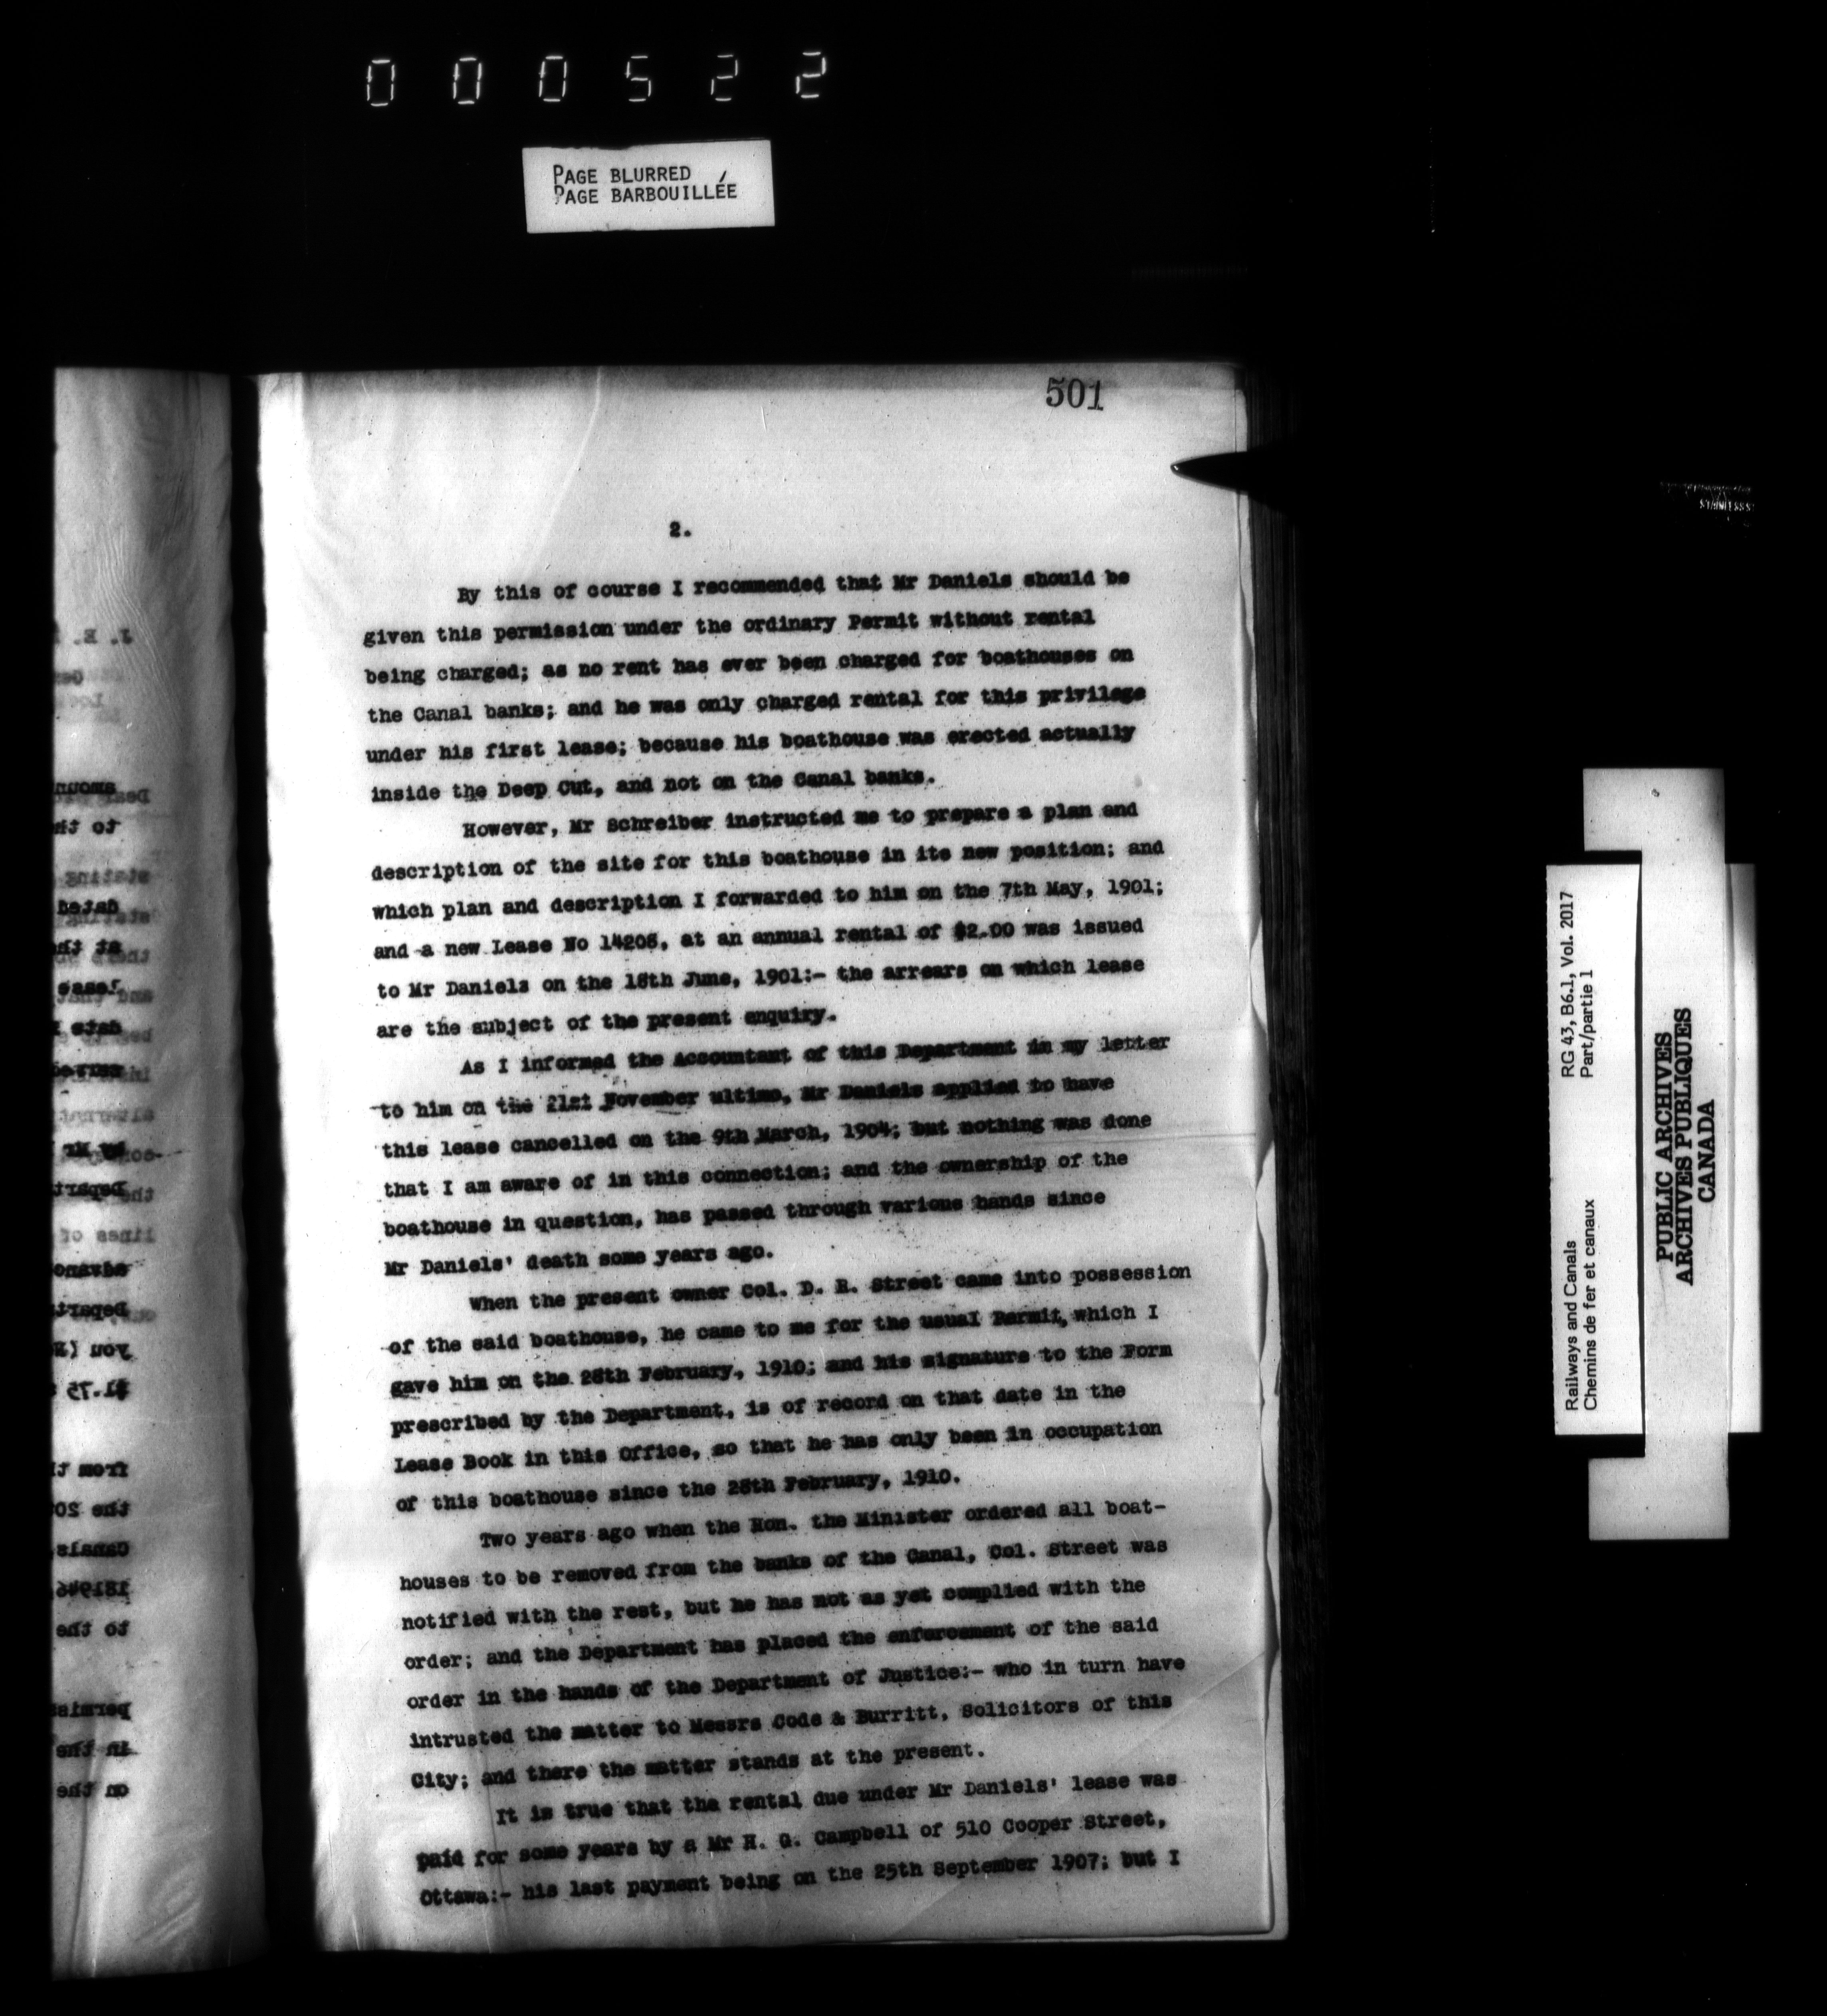 000522
PAGE BLURRED
PAGE BARBOUILLÉE
501
2.
By this of course I recommended that Mr Daniels should be
given this permission under the ordinary Permit without rental
being charged; as no rent has ever been charged for boathouses on
the Canal banks; and he was only charged rental for this privilege
under his first lease; because his boathouse was erected actually
inside the Deep Cut, and not on the Canal banks.
However, Mr Schreiber instructed me to prepare a plan and
description of the site for this boathouse in its new position; and
which plan and description I forwarded to him on the 7th May, 1901;
and a new Lease No 14208, at an annual rental of $2.00 was issued
to Mr Daniels on the 18th June, 1901:- the arrears on which lease
are the subject of the present enquiry.
As I informed the Accountant of this Department in my letter
to him on the 21st November ultimo, Mr Daniels applied to have
this lease cancelled on the 9th March, 1904; but nothing was done
that I am aware of in this connection; and the ownership of the
boathouse in question, has passed through various hands since
Mr Daniels' death some years ago.
When the present owner Col. D. R. Street came into possession
of the said boathouse, he came to me for the usual Permit, which I
gave him on the 28th February, 1910; and his signature to the Form
prescribed by the Department, is of record on that date in the
Lease Book in this Office, so that he has only been in occupation
of this boathouse since the 28th February, 1910.
Two years ago when the Hon. the Minister ordered all boat-
houses to be removed from the banks of the Canal, Col. Street was
notified with the rest, but he has not as yet complied with the
order; and the Department has placed the enforcement of the said
order in the hands of the Department of Justice:- who in turn have
intrusted the matter to Messrs Code & Burritt, Solicitors of this
City; and there the matter stands at the present.
It is true that the rental due under Mr Daniels' lease was
paid for some years by a Mr H. G. Campbell of 510 Cooper Street,
Ottawa:- his last payment being on the 25th September 1907; but I
Railways and Canals RG 43, B6.1, Vol. 2017
Chemins de fer et canaux Part/partie 1
PUBLIC ARCHIVES
ARCHIVES PUBLIQUES
CANADA